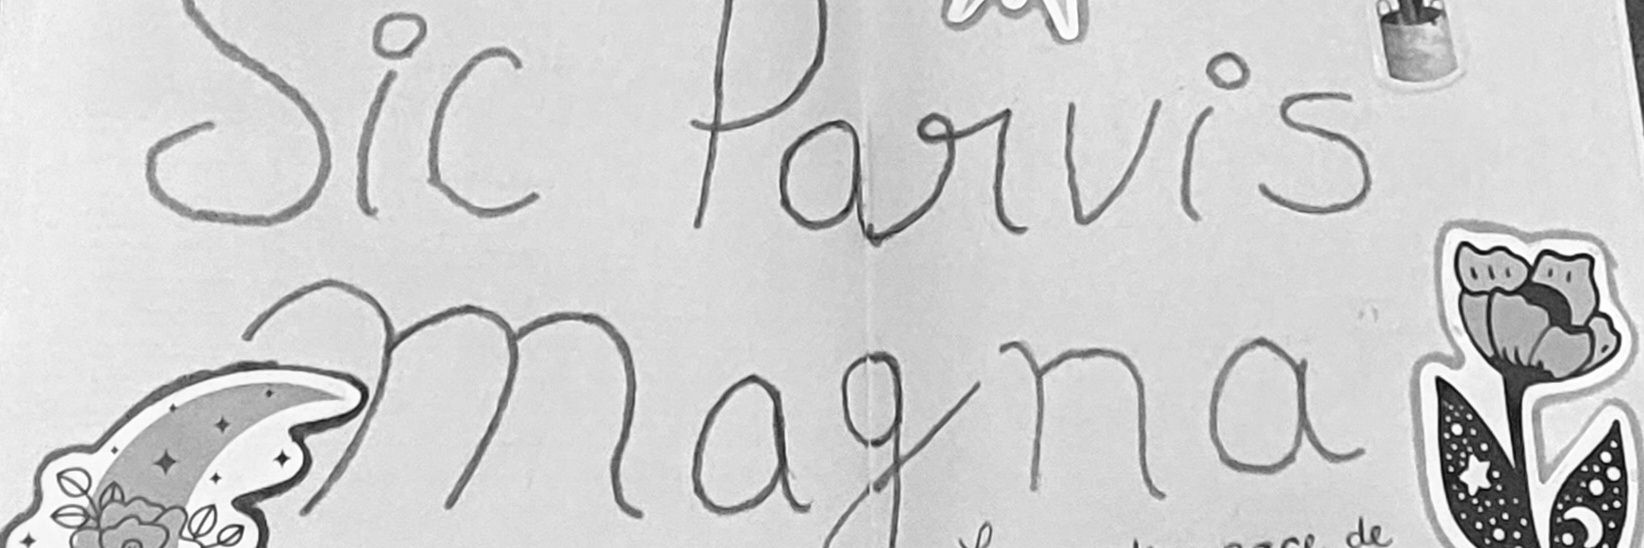 Sic Parvis
Magna
de